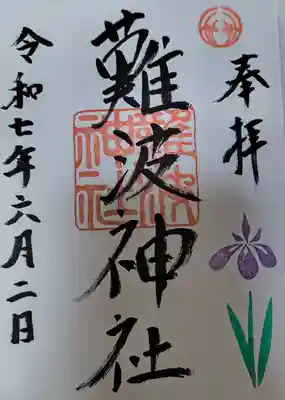 奉拝
難波神社
難波神社
令和七年六月二日